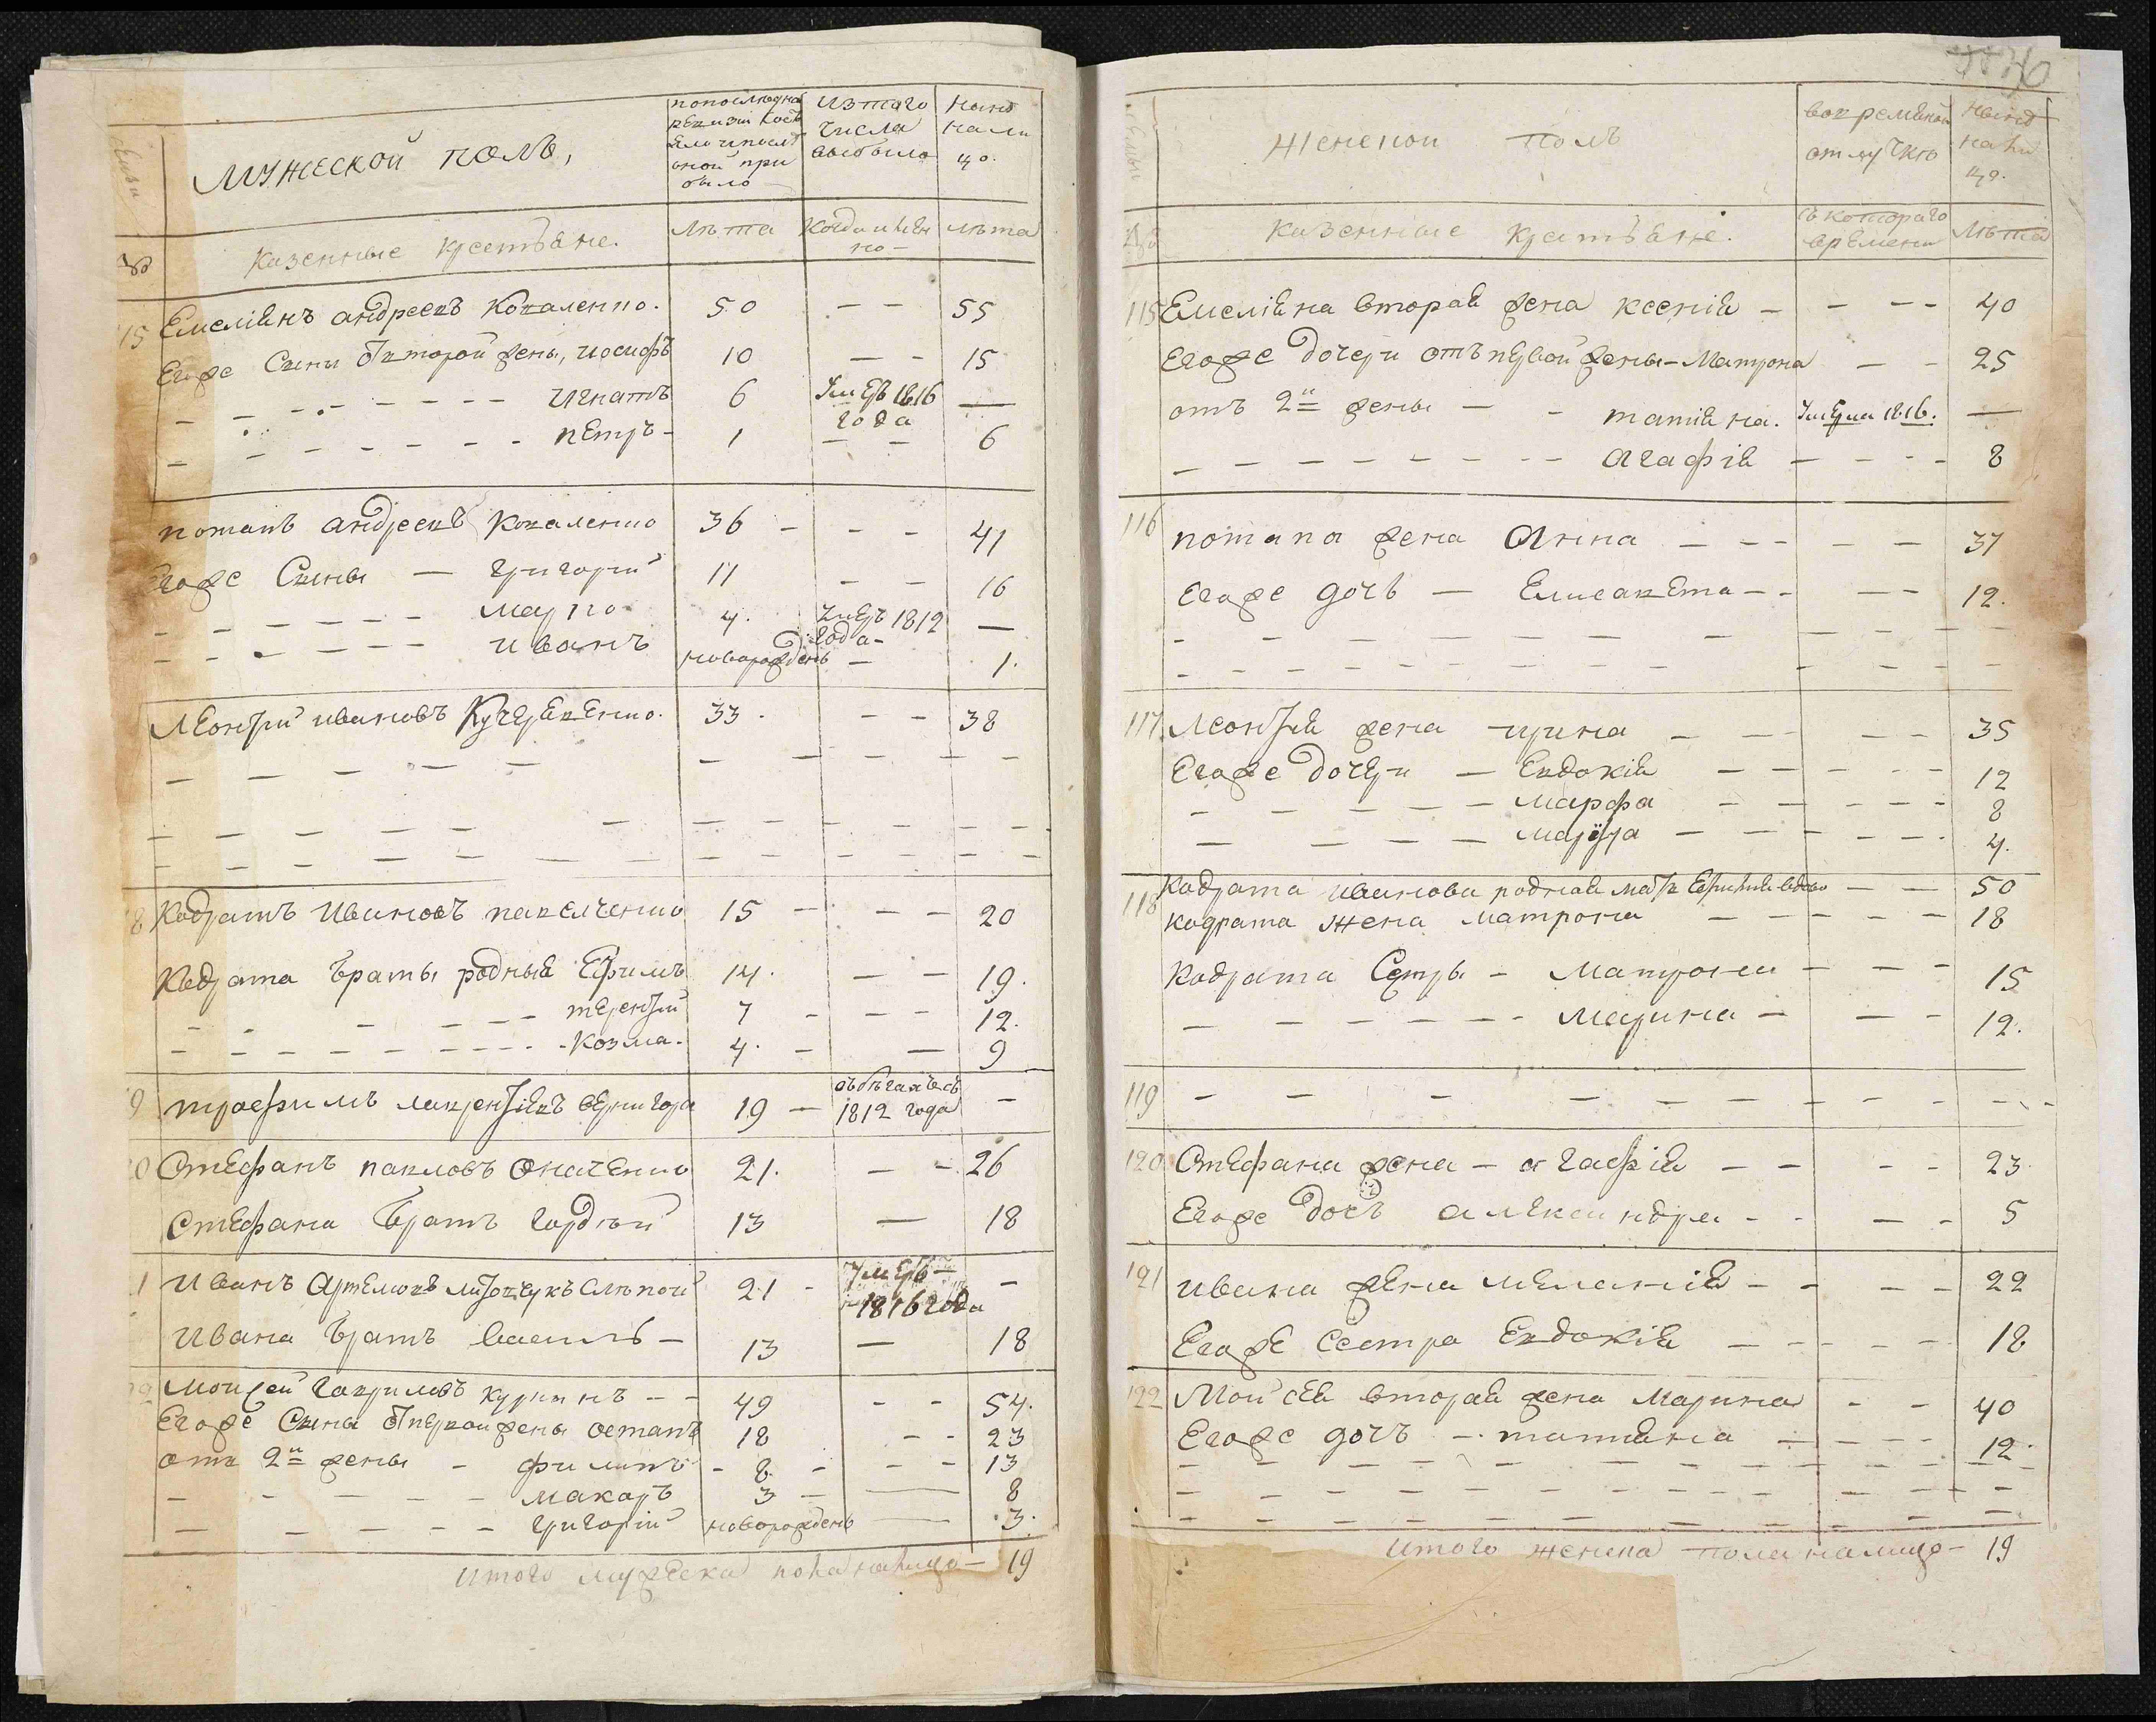 мужеской полъ,
по последней ревизии состояло и после оной прибыло
изтого числа выбыло
ныне на лицо.
Казенные крестьяне.
Лѣта
Когда именно
лѣта
15 Емелiянъ андреевъ Коваленко. 50 — — 55
Егоже Сыны отвторой жены, иосифъ 10 — — 15
игнатъ 6 Умеръ 1816 года —
петръ 1 — — 6
потапъ андреевъ Коваленко 36 — — 41
Егоже Сыны — григорий 11 — — 16
марко 4. Умеръ 1812 года —
иванъ новорожденъ — 1.
Леонтий ивановъ Кучерявенко. 33. — — 38
8 Кодратъ Ивановъ павелченко 15 — — 20
Кодрата браты родныя Ефимъ 14. — — 19.
терентий 7 — — 12.
Козма. 4. — 9
9 трофимъ лаврентiевъ вернигора 19 — 1812 года —
0 Стефанъ павловъ 21. — — 26
Стефана братъ гордѣй 13 — 18
1 Иванъ Артемовъ Слѣпой 21 — Умеръ 1816 года —
Ивана братъ василь — 13 — 18
Моисей гавриловъ 49 — — 54.
Егоже Сыны отпервой жены остапъ 18 — — 23
отъ 2й жены — филипъ — 8 — — — 13
макаръ 3 — — 8
григорiй новорожденъ — 3.
итого мужеска пола налицо — 19
Женской полъ
вовременной отлучкѣ
ныне налицо.
Казенные Крестьяне.
съ котораго времени
Лѣта
115 Емелiяна вторая жена ксенiя — — — — 40
Егоже дочери отъ первой жены — Матрона — — 25
отъ 2й жены — — татiяна. Умерла 1816. —
Агафiя — — — — 8
116 потапа жена Анна — — — — — 37
Егоже дочь — Елисавета — — — — 12.
117 Леонтия жена — ирина — — — — — 35
Егоже дочери — Евдокiя — — — — — 12
Марфа — — — — — 8
мавра — — — — — — 4.
118 Кодрата Иванова родная мать вдова — — 50
Кодрата жена матрона — — — — — 18
Кодрата Сестры — Матрона — — — 15
Марина — — — 12.
119
120 Стефана жена — агафiя — — — — 23.
Егоже дочь александра — — — — 5
121 ивана жена меланiя — — — — 22
Егоже Сестра Евдокiя — — — — — 18
122 Мойсея вторая жена Марина — — 40
Егоже дочь — татiяна — — — — 12.
итого женска пола налицо — 19